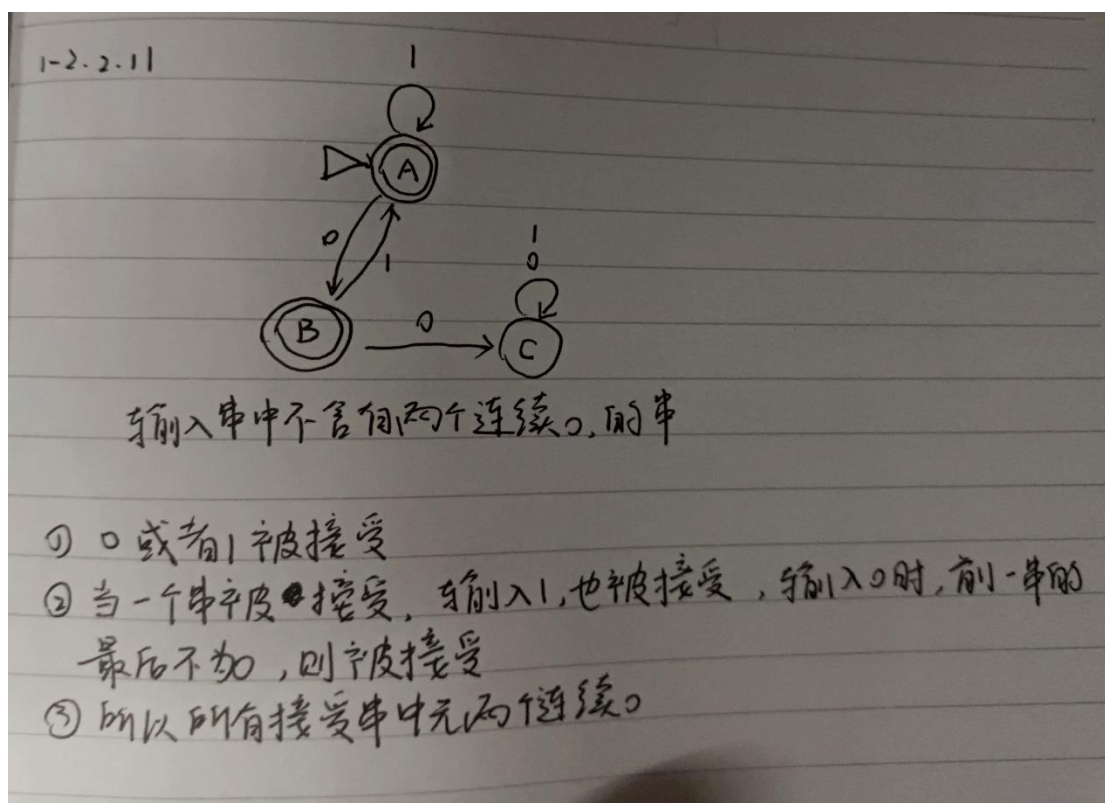 1-2.2.11
1
A
0
1
1
0
B
0
C
输入串中不含有两个连续0,的串
① 0或者1被接受
② 当一个串被接受,输入1,也被接受,输入0时,前一串的
最后不为0,则被接受
③ 所以所有接受串中无两个连续0